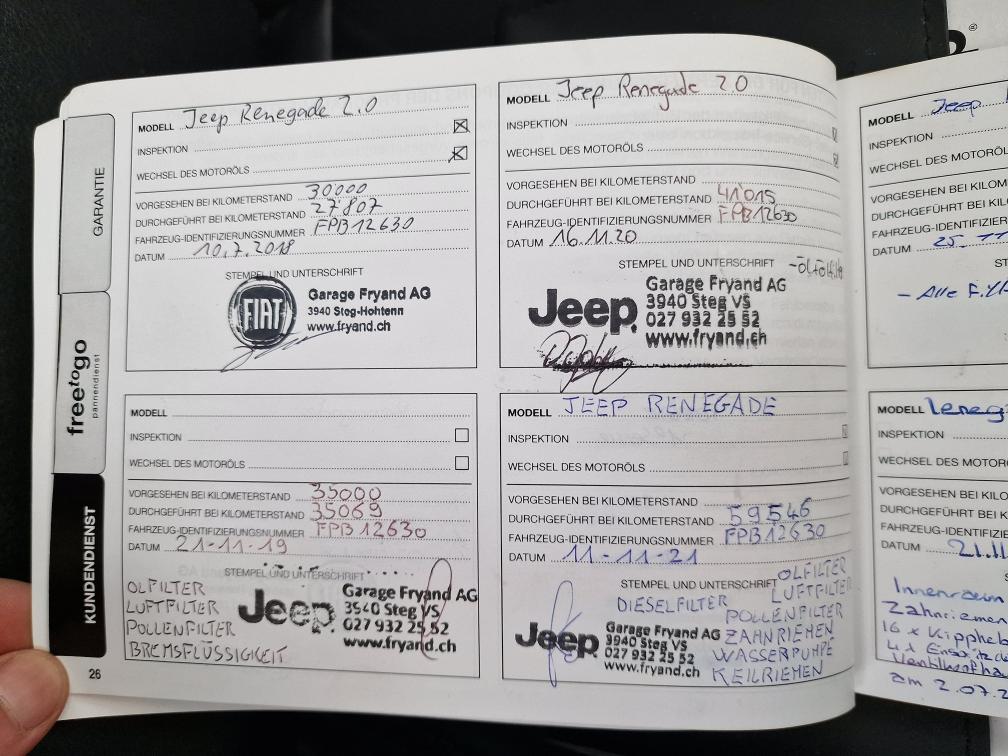 GARANTIE
freetogo
pannendienst
KUNDENDIENST
MODELL Jeep Renegade 2.0
INSPEKTION
WECHSEL DES MOTORÖLS
VORGESEHEN BEI KILOMETERSTAND 30000
DURCHGEFÜHRT BEI KILOMETERSTAND 27'807
FAHRZEUG-IDENTIFIZIERUNGSNUMMER FPB12630
DATUM 10.7.2018
STEMPEL UND UNTERSCHRIFT
FIAT
Garage Fryand AG
3940 Steg-Hohtenn
www.fryand.ch
MODELL
INSPEKTION
WECHSEL DES MOTORÖLS
VORGESEHEN BEI KILOMETERSTAND 35000
DURCHGEFÜHRT BEI KILOMETERSTAND 35069
FAHRZEUG-IDENTIFIZIERUNGSNUMMER FPB12630
DATUM 21-11-19
STEMPEL UND UNTERSCHRIFT
OLFILTER
LUFTFILTER
POLLENFILTER
BREMSFLÜSSIGKEIT
Jeep
Garage Fryand AG
3940 Steg VS
027 932 25 52
www.fryand.ch
26
MODELL Jeep Renegade 2.0
INSPEKTION
WECHSEL DES MOTORÖLS
VORGESEHEN BEI KILOMETERSTAND
DURCHGEFÜHRT BEI KILOMETERSTAND 41'015
FAHRZEUG-IDENTIFIZIERUNGSNUMMER FPB12630
DATUM 16.11.20
STEMPEL UND UNTERSCHRIFT
Jeep
Garage Fryand AG
3940 Steg VS
027 932 25 52
www.fryand.ch
MODELL JEEP RENEGADE
INSPEKTION
WECHSEL DES MOTORÖLS
VORGESEHEN BEI KILOMETERSTAND
DURCHGEFÜHRT BEI KILOMETERSTAND 59546
FAHRZEUG-IDENTIFIZIERUNGSNUMMER FPB12630
DATUM 11-11-21
STEMPEL UND UNTERSCHRIFT
OLFILTER
LUFTFILTER
DIESELFILTER
POLLENFILTER
ZAHNRIEMEN
WASSERPUMPE
KEILRIEMEN
Jeep
Garage Fryand AG
3940 Steg VS
027 932 25 52
www.fryand.ch
MODELL Jeep
INSPEKTION
WECHSEL DES MOTORÖL
VORGESEHEN BEI KILO
DURCHGEFÜHRT BEI KI
FAHRZEUG-IDENTIFIZIER
DATUM 25.
ST
- Alle
MODELL
INSPEKTION
WECHSEL DES MOTORÖ
VORGESEHEN BEI KILO
DURCHGEFÜHRT BEI K
FAHRZEUG-IDENTIFIZIE
DATUM 21.11
Innenraum
Zahnriemen
16 x
4x
am 2.07.2